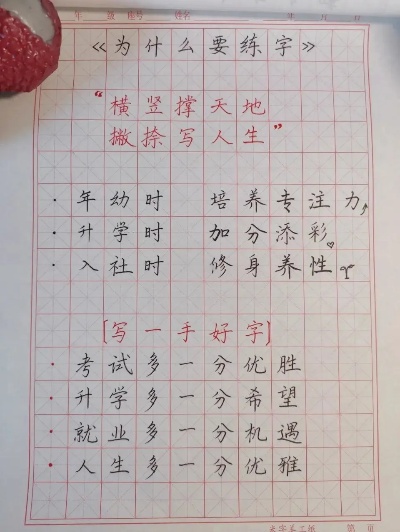 年 级 座号 姓名 年 月 日
《为什么要练字》
“横竖撑天地
撇捺写人生”
· 年幼时 培养专注力
· 升学时 加分添彩
· 入社时 修身养性
[写一手好字]
· 考试多一分优胜
· 升学多一分希望
· 就业多一分机遇
· 人生多一分优雅
第 页